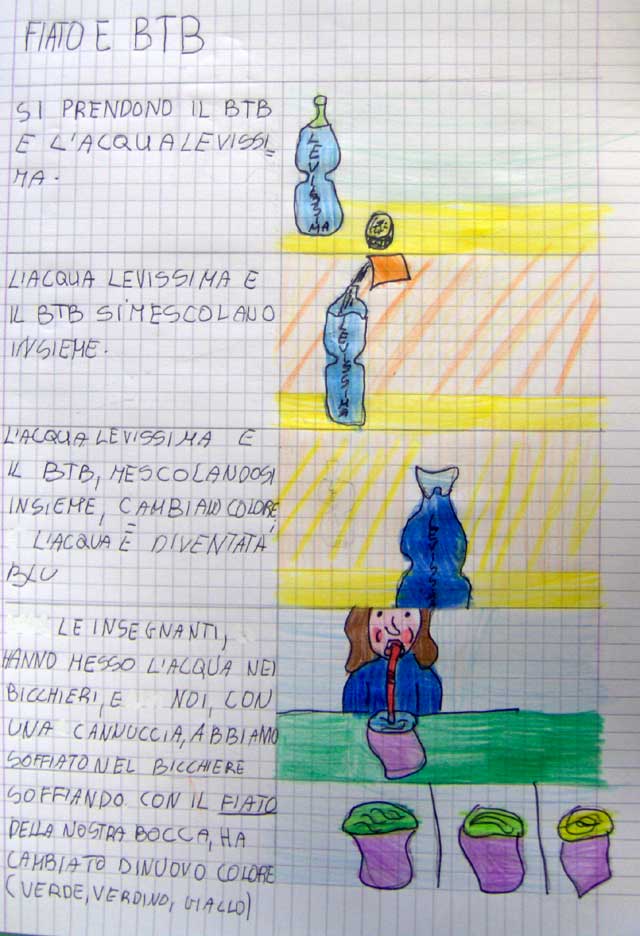 FIATO E BTB
SI PRENDONO IL BTB
E L'ACQUA LEVISSI=
MA.
LEVISSIMA
L'ACQUA LEVISSIMA E
IL BTB SI MESCOLANO
INSIEME.
LEVISSIMA
L'ACQUA LEVISSIMA E
IL BTB, MESCOLANDOSI
INSIEME, CAMBIANO COLORE
L'ACQUA È DIVENTATA
BLU
LEVISSI
LE INSEGNANTI,
HANNO MESSO L'ACQUA NEI
BICCHIERI, E NOI, CON
UNA CANNUCCIA, ABBIAMO
SOFFIATO NEL BICCHIERE
SOFFIANDO CON IL FIATO
DELLA NOSTRA BOCCA, HA
CAMBIATO DINUOVO COLORE
(VERDE, VERDINO, GIALLO)